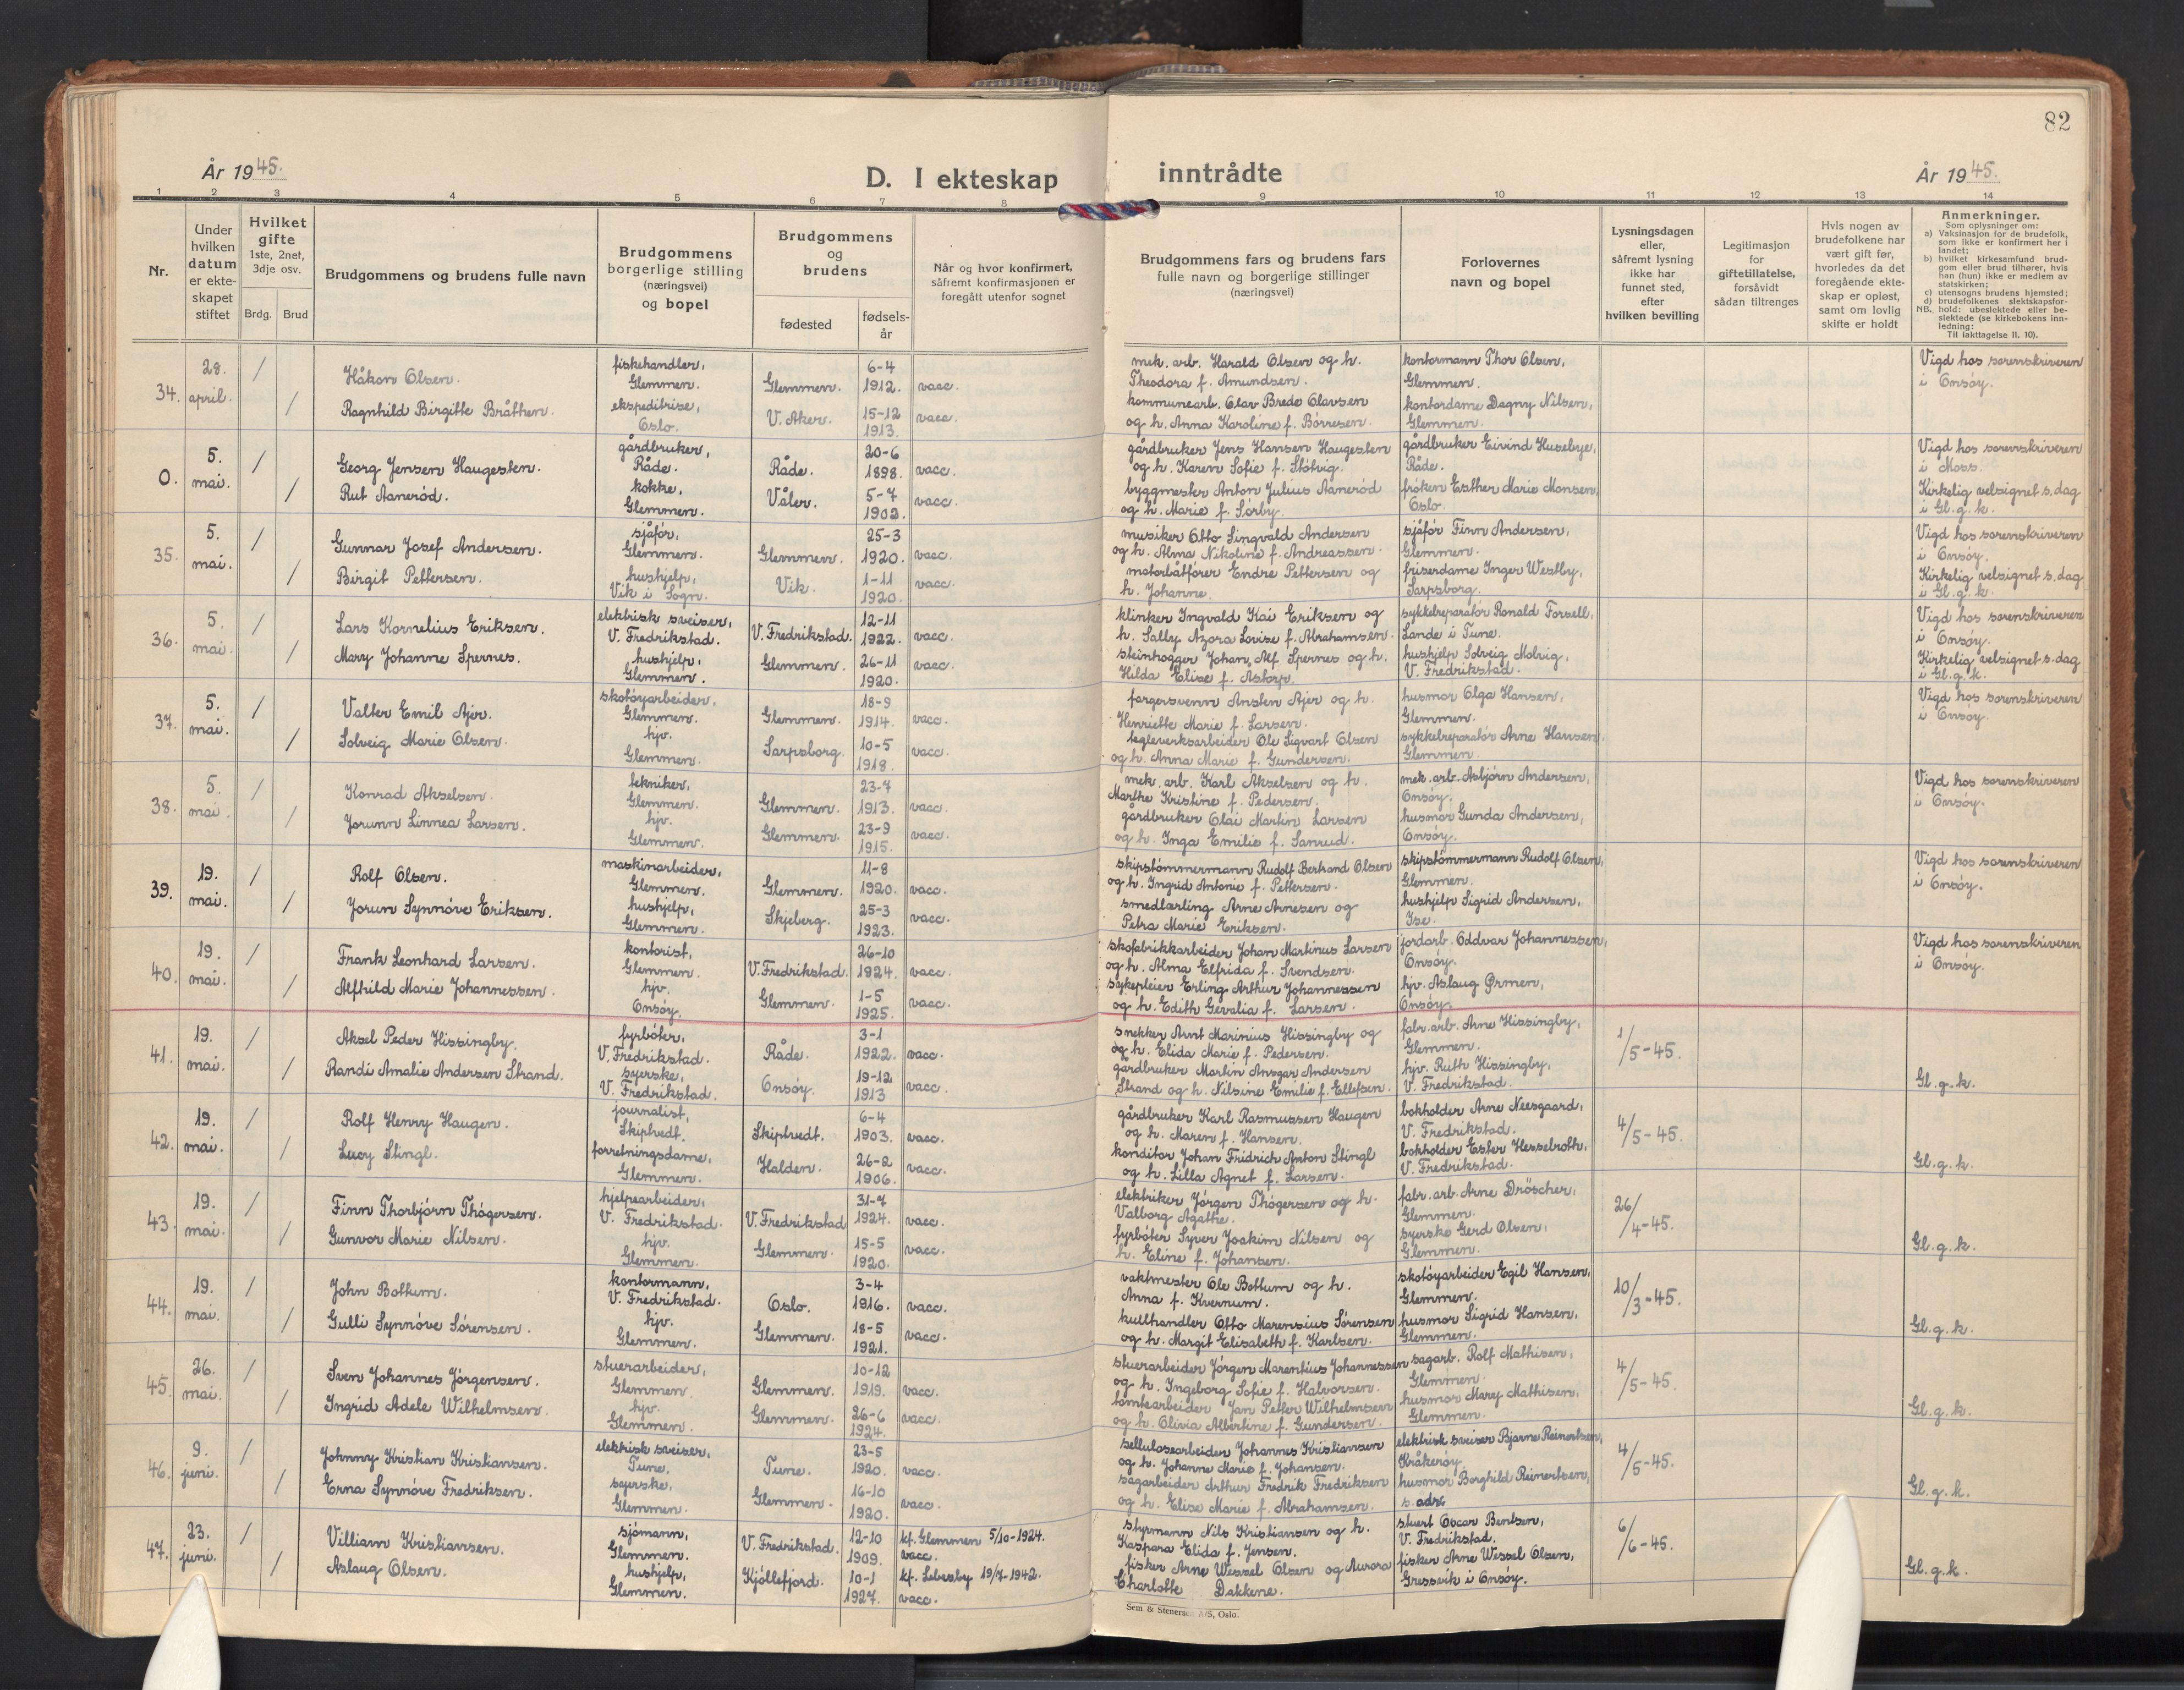 82
År 1945.
D. I ekteskap inntrådte
År 1945.
1 2 3 4 5 6 7 8 9 10 11 12 13 14
Nr.
Under hvilken datum er ekteskapet stiftet
Hvilket gifte 1ste, 2net, 3dje osv.
Brdg. Brud
Brudgommens og brudens fulle navn
Brudgommens borgerlige stilling (næringsvei) og bopel
Brudgommens og brudens
fødested
fødselsår
Når og hvor konfirmert, såfremt konfirmasjonen er foregått utenfor sognet
Brudgommens fars og brudens fars fulle navn og borgerlige stillinger (næringsvei)
Forlovernes navn og bopel
Lysningsdagen eller, såfremt lysning ikke har funnet sted, efter hvilken bevilling
Legitimasjon for giftetillatelse, forsåvidt sådan tiltrenges
Hvis nogen av brudefolkene har vært gift før, hvorledes da det foregående ekteskap er opløst, samt om lovlig skifte er holdt
Anmerkninger.
Som oplysninger om:
a) Vaksinasjon for de brudefolk, som ikke er konfirmert her i landet;
b) hvilket kirkesamfund brudgom eller brud tilhører, hvis han (hun) ikke er medlem av statskirken;
c) utensogns brudens hjemsted;
d) brudefolkenes slektskapsforhold: ubeslektede eller beslektede (se kirkebokens innledning:
NB. Til iakttagelse II. 10).
34. 28. april. / Håkon Olsen. fiskehandler, Glemmen. Glemmen. 6-4 1912. vacc. mek. arb. Harald Olsen og h. Theodora f. Amundsen. kontormann Thor Olsen, Glemmen. Vigd hos sorenskriveren i Onsøy.
/ Ragnhild Birgitte Bråthen. ekspeditrise, Oslo. V. Aker. 15-12 1913. vacc. kommunearb. Olav Bredo Olavsen og h. Anna Karoline f. Børresen. kontordame Dagny Nilsen, Glemmen.
0. 5. mai. / Georg Jensen Haugesten. gårdbruker, Råde. Råde. 20-6 1898. vacc. gårdbruker Jens Hansen Haugesten og h. Karen Sofie f. Stötvig. gårdbruker Eivind Husebye, Råde. Vigd hos sorenskriveren i Moss.
/ Rut Aanerød. kokke, Glemmen. Våler. 5-7 1902. vacc. byggmester Anton Julius Aanerød og h. Marie f. Sørby. frøken Esther Marie Monsen, Oslo. Kirkelig velsignet s. dag i Gl. g. k.
35. 5. mai. / Gunnar Josef Andersen. sjåfør, Glemmen. Glemmen. 25-3 1920. vacc. musiker Otto Singvald Andersen og h. Alma Nikoline f. Andreassen. sjåfør Finn Andersen, Glemmen. Vigd hos sorenskriveren i Onsøy.
/ Birgit Pettersen. hushjelp, Vik i Sogn. Vik. 1-11 1920. vacc. motorbåtfører Endre Pettersen og h. Johanne. friserdame Inger Westby, Sarpsborg. Kirkelig velsignet s. dag i Gl. g. k.
36. 5. mai. / Lars Kornelius Eriksen. elektrisk sveiser, V. Fredrikstad. V. Fredrikstad. 12-11 1922. vacc. klinker Ingvald Kai Eriksen og h. Sally Azora Lovise f. Abrahamsen. sykkelreparatør Ronald Forsell, Lande i Tune. Vigd hos sorenskriveren i Onsøy.
/ Mary Johanne Spernes. hushjelp, Glemmen. Glemmen. 26-11 1920. vacc. steinhogger Johan Alf Spernes og h. Hilda Elise f. Astorp. hushjelp Solveig Molvig, V. Fredrikstad. Kirkelig velsignet s. dag i Gl. g. k.
37. 5. mai. / Valter Emil Ajer. skotøyarbeider, Glemmen. Glemmen. 18-9 1914. vacc. fargersvenn Ansten Ajer og h. Henriette Marie f. Larsen. husmor Olga Hansen, Glemmen. Vigd hos sorenskriveren i Onsøy.
/ Solveig Marie Olsen. hjv. Glemmen. Sarpsborg. 10-5 1918. vacc. teglverksarbeider Ole Sigvart Olsen og h. Anna Marie f. Gundersen. sykkelreparatør Arne Hansen. Glemmen.
38. 5. mai. / Konrad Akselsen. tekniker, Glemmen. Glemmen. 23-7 1913. vacc. mek. arb. Karl Akselsen og h. Marthe Kristine f. Pedersen. mek. arb. Asbjørn Andersen, Onsøy. Vigd hos sorenskriveren i Onsøy.
/ Jorunn Linnea Larsen. hjv. Glemmen. Glemmen. 23-9 1915. vacc. gårdbruker Olai Martin Larsen og h. Inga Emilie f. Sanrud. husmor Gunda Andersen, Onsøy.
39. 19. mai. / Rolf Olsen. maskinarbeider, Glemmen. Glemmen. 11-8 1920. vacc. skipstømmermann Rudolf Bertrand Olsen og h. Ingrid Antonie f. Pettersen. skipstømmermann Rudolf Olsen, Glemmen. Vigd hos sorenskriveren i Onsøy.
/ Jorun Synnøve Eriksen. hushjelp, Glemmen. Skjeberg. 25-3 1923. vacc. smedlærling Arne Arnesen og Petra Marie Eriksen. hushjelp Sigrid Andersen, Ise.
40. 19. mai. / Frank Leonhard Larsen. kontorist, Glemmen. V. Fredrikstad. 26-10 1924. vacc. skofabrikkarbeider Johan Martinus Larsen og h. Alma Elfrida f. Svendsen. jordarb. Oddvar Johannessen, Onsøy. Vigd hos sorenskriveren i Onsøy.
/ Alfhild Marie Johannessen. hjv. Onsøy. Glemmen. 1-5 1925. vacc. sykepleier Erling Arthur Johannessen og h. Edith Gevalia f. Larsen. hjv. Aslaug Ørmen, Onsøy.
41. 19. mai. / Aksel Peder Hissingby. fyrbøter, V. Fredrikstad. Råde. 3-1 1922. vacc. snekker Arnt Marinius Hissingby og og h. Elida Marie f. Pedersen. fabr. arb. Arne Hissingby, Glemmen. 1/5-45.
/ Randi Amalie Andersen Strand. syerske, V. Fredrikstad. Onsøy. 19-12 1913 vacc. gårdbruker Martin Ansgar Andersen Strand og h. Nilsine Emilie f. Ellefsen. hjv. Ruth Hissingby, V. Fredrikstad. Gl. g. k.
42. 19. mai. / Rolf Henry Haugen. journalist, Skiptvedt. Skiptvedt. 6-4 1903. vacc. gårdbruker Karl Rasmussen Haugen og h. Maren f. Hansen. bokholder Arne Neesgaard, V. Fredrikstad. 4/5-45.
/ Lucy Stingl. forretningsdame, Glemmen. Halden. 26-2 1906. vacc. konditor Johan Fridrich Anton Stingl og h. Lilla Agnet f. Larsen. bokholder Ester Hesselroth, V. Fredrikstad. Gl. g. k.
43. 19. mai. / Finn Thorbjørn Thøgersen. hjelpearbeider, V. Fredrikstad. V. Fredrikstad 31-7 1924. vacc. elektriker Jørgen Thøgersen og h. Valborg Agathe. fabr. arb. Arne Dröscher, Glemmen. 26/4-45.
/ Gunvor Marie Nilsen. hjv. Glemmen. Glemmen. 15-5 1920. vacc. fyrbøter Syver Joakim Nilsen og h. Eline f. Johansen. syerske Gerd Olsen, Glemmen. Gl. g. k.
44. 19. mai. / John Bottum. kontormann, V. Fredrikstad. Oslo. 3-4 1916. vacc. vaktmester Ole Bottum og h. Anna f. Kvernum. skotøyarbeider Egil Hansen, Glemmen. 10/3-45.
/ Gulli Synnøve Sørensen. hjv. Glemmen. Glemmen. 18-5 1921. vacc. kullhandler Otto Marensius Sørensen og h. Margit Elisabeth f. Karlsen. husmor Sigrid Hansen, Glemmen. Gl. g. k.
45. 26. mai. / Sven Johannes Jørgensen. stuerarbeider, Glemmen. Glemmen. 10-12 1919. vacc. stuerarbeider Jørgen Marentius Johannessen og h. Ingeborg Sofie f. Halvorsen. sagarb. Rolf Mathisen, Glemmen. 4/5-45.
/ Ingrid Adele Wilhelmsen. hjv. Glemmen. Glemmen. 26-6 1924. vacc. tomtearbeider Jan Petter Wilhelmsen og h. Olivia Albertine f. Gundersen. husmor Mary Mathisen, Glemmen. Gl. g. k.
46. 9. juni. / Johnny Kristian Kristiansen. elektrisk sveiser, Tune. Tune. 23-5 1920. vacc. sellulosearbeider Johannes Kristiansen og h. Johanne Marie f. Johansen. elektrisk sveiser Bjarne Reinertsen, Kråkerøy. 4/5-45.
/ Erna Synnøve Fredriksen. syerske, Glemmen. Glemmen. 16-10 1920. vacc. sagarbeider Arthur Fredrik Fredriksen og h. Elise Marie f. Abrahamsen. husmor Borghild Reinertsen, s. adr. Gl. g. k.
47. 23. juni. / Villiam Kristiansen. sjømann, Glemmen. V. Fredrikstad. 12-10 1909. kf. Glemmen 5/10-1924. vacc. styrmann Nils Kristiansen og h. Kaspara Elida f. Jensen. stuert Oscar Bentsen, V. Fredrikstad. 6/6-45.
/ Aslaug Olsen. hushjelp, Glemmen. Kjøllefjord. 10-1 1927. kf. Lebesby 19/7-1942. vacc. fisker Arne Wessel Olsen og Aurora Charlotte Dakkene. fisker Arne Wessel Olsen, Gressvik i Onsøy. Gl. g. k.
Sem & Stenersen A/S, Oslo.